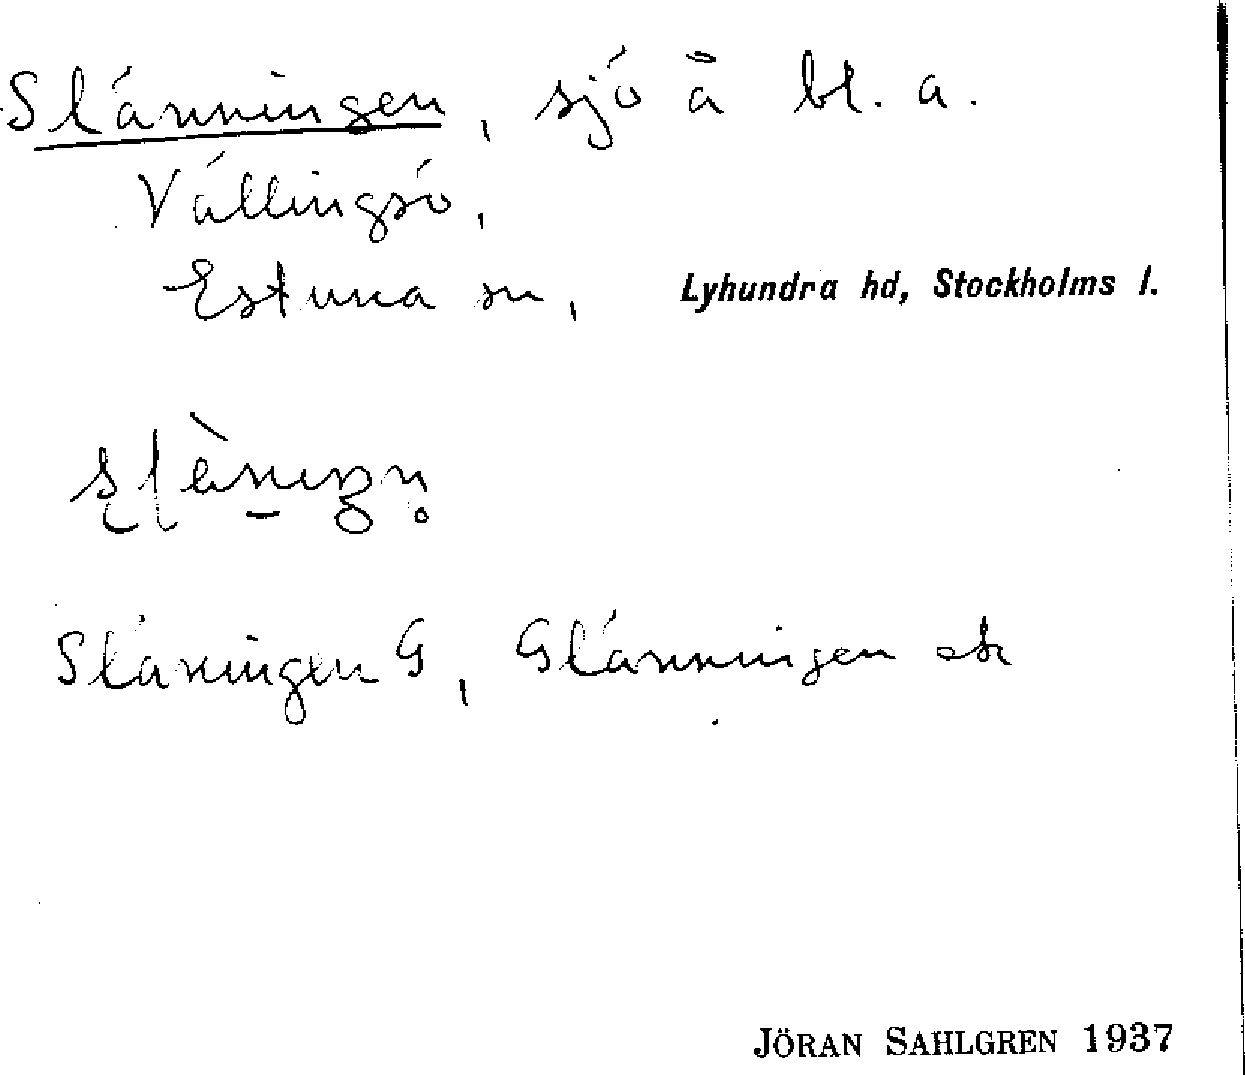 Slänningen, sjö å bl. a.
Vällingsö,
Estuna sn, Lyhundra hd, Stockholms l.
Släningen G, Glänningen ek
JÖRAN SAHLGREN 1937